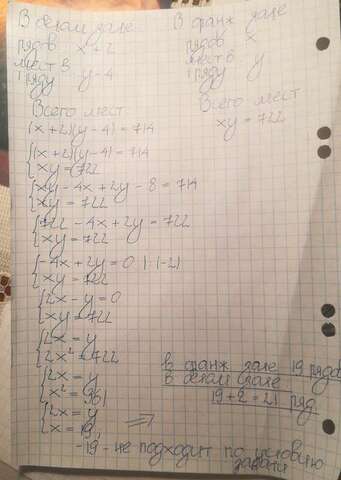 В белом зале
рядов x + 2
мест в
1 ряду y - 4
В оранж зале
рядов x
мест в
1 ряду y
Всего мест
(x + 2)(y - 4) = 714
Всего мест
xy = 722
{(x + 2)(y - 4) = 714
{xy = 722
{xy - 4x + 2y - 8 = 714
{xy = 722
{722 - 4x + 2y = 722
{xy = 722
{-4x + 2y = 0 | · (-2)
{xy = 722
{2x - y = 0
{xy = 722
{2x = y
{2x² = 722
{2x = y
{x² = 361
{2x = y
{x = 19,
-19 - не подходит по условию
задачи
⟹
в оранж зале 19 рядов
в белом зале
19 + 2 = 21 ряд.